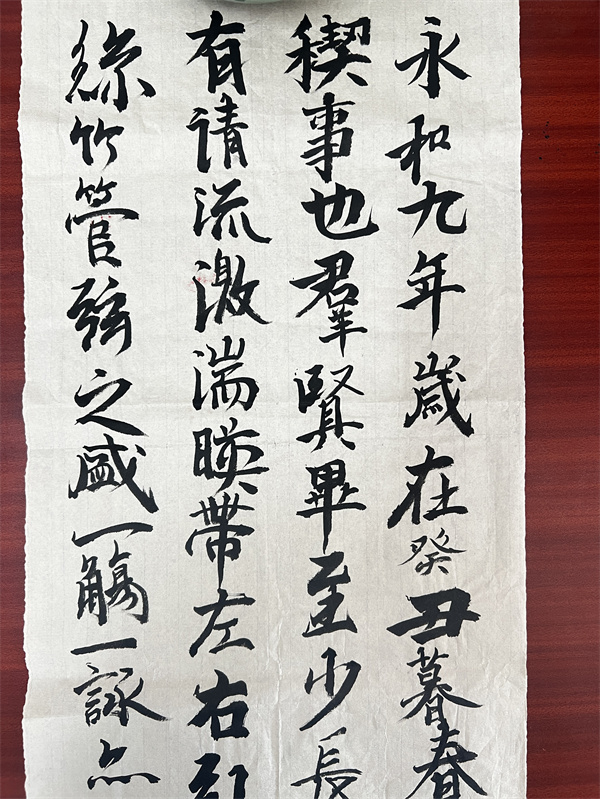 永和九年歲在癸丑暮春
稧事也羣賢畢至少長
有請流激湍暎帶左右引
絲竹管弦之盛一觴一詠亦